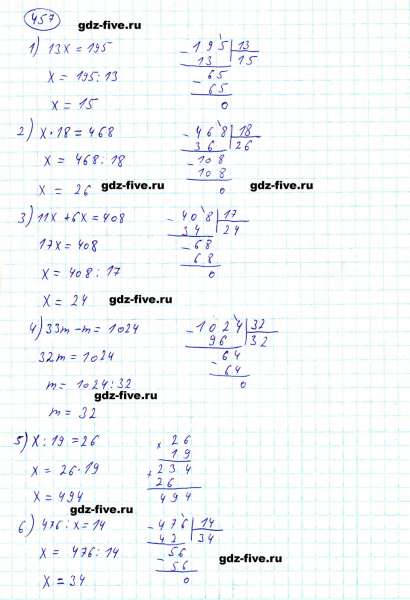 457
gdz-five.ru
1) 13x = 195
x = 195 : 13
x = 15
- 195 | 13
13 | 15
- 65
65
0
2) x · 18 = 468
x = 468 : 18
x = 26
- 468 | 18
36 | 26
- 108
108
0
gdz-five.ru
gdz-five.ru
3) 11x + 6x = 408
17x = 408
x = 408 : 17
x = 24
- 408 | 17
34 | 24
- 68
68
0
gdz-five.ru
4) 33m - m = 1024
32m = 1024
m = 1024 : 32
m = 32
- 1024 | 32
96 | 32
- 64
64
0
gdz-five.ru
5) x : 19 = 26
x = 26 · 19
x = 494
x 26
19
+ 234
26
494
gdz-five.ru
6) 476 : x = 14
x = 476 : 14
x = 34
- 476 | 14
42 | 34
- 56
56
0
gdz-five.ru